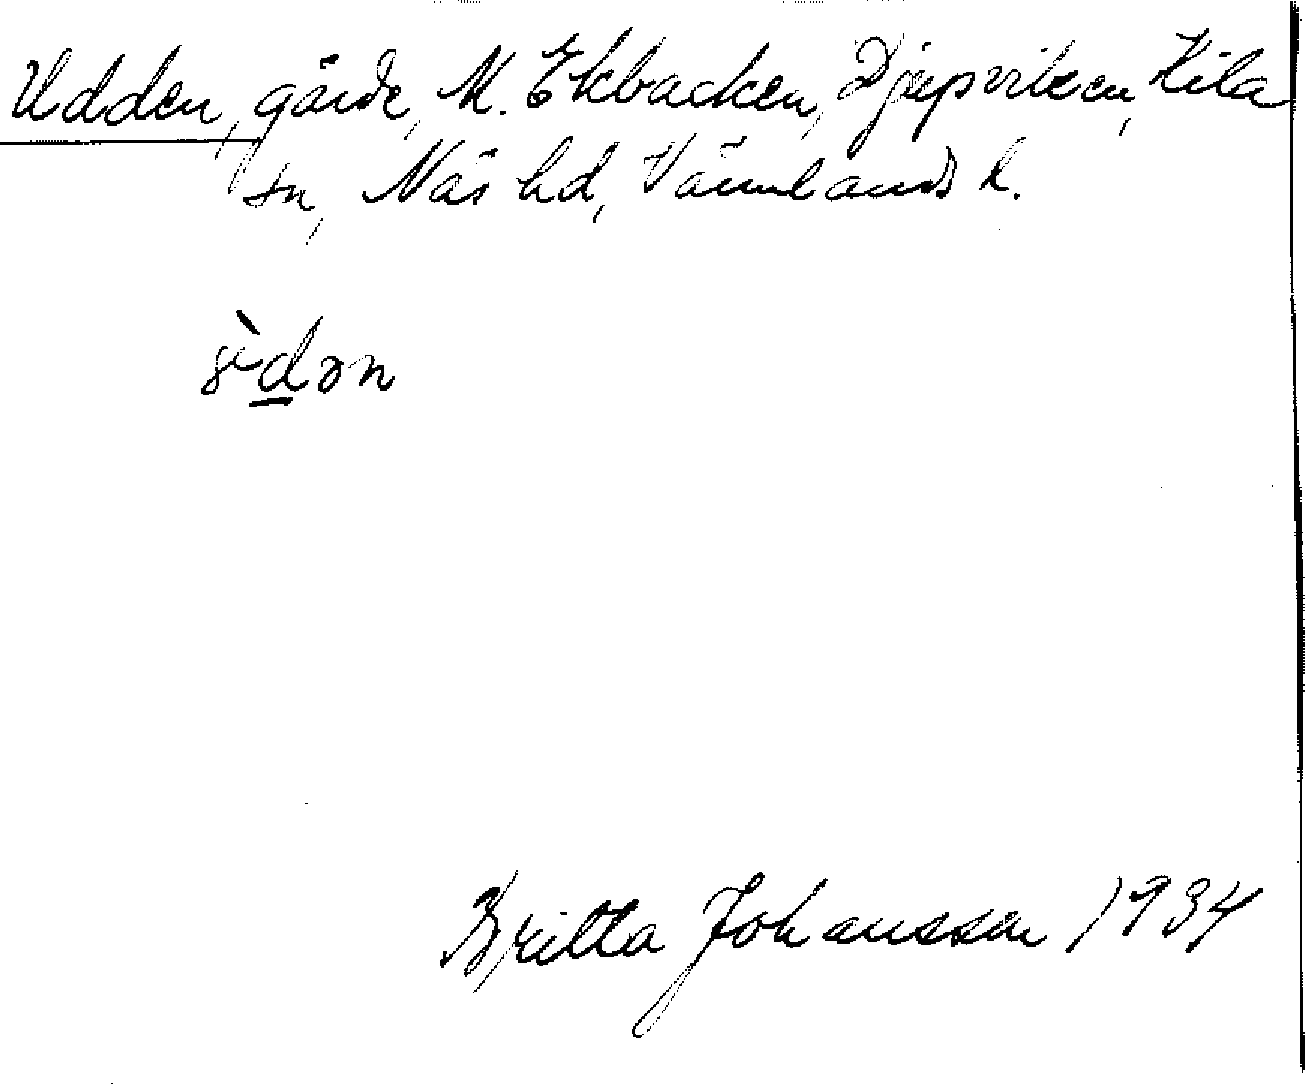 Udden, gärde, N. Ekbacken, Djupviken, Kila
sn, Näs hd, Värmlands l.
Britta Johansson 1934